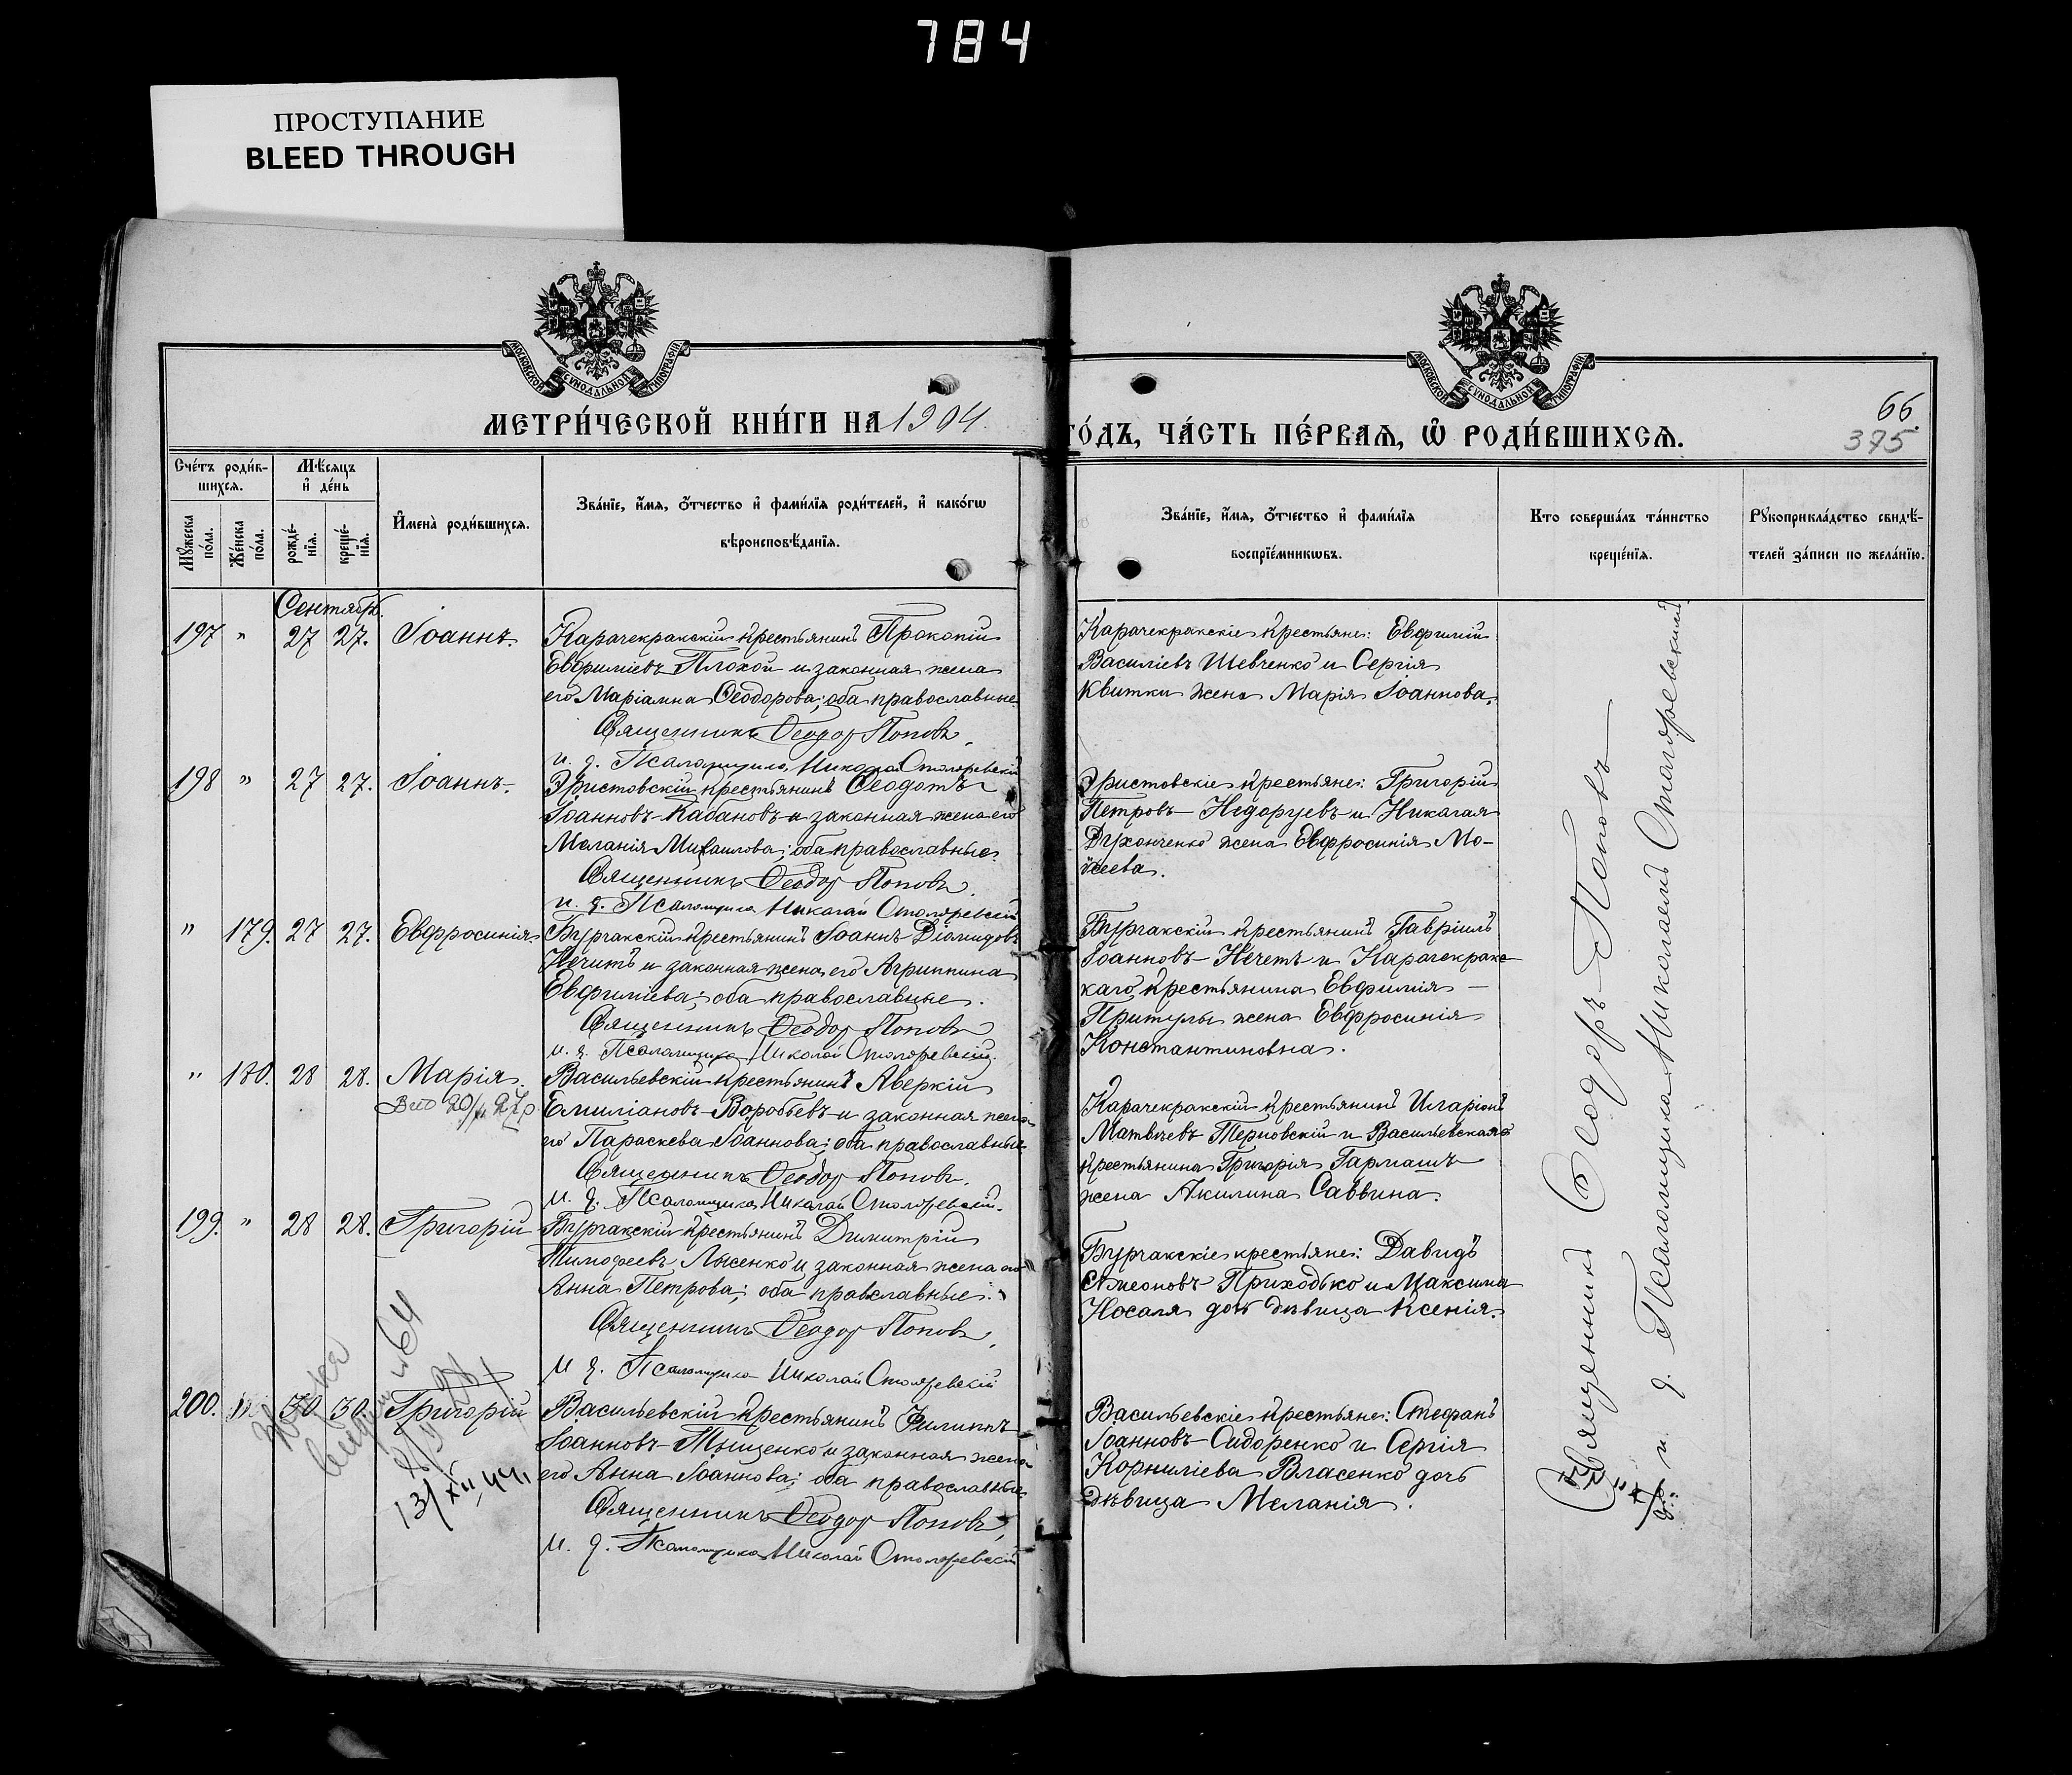 784
ПРОСТУПАНИЕ
BLEED THROUGH
МОСКОВСКОЙ СѴНОДАЛЬНОЙ ТИПОГРАФІИ
МОСКОВСКОЙ СѴНОДАЛЬНОЙ ТИПОГРАФІИ
МЕТРИ́ЧЕСКОЙ КНИ́ГИ НА 1904.
ГО́ДЪ, ЧА́СТЬ ПЕ́РВАѦ, Ѡ҆ РОДИ́ВШИХСѦ.
66.
375
Сче́тъ роди́в-
шихсѧ.
Мѣ́сяцъ
и҆ де́нь
Мꙋ́жеска по́ла.
Же́нска по́ла.
рожде́-
нїѧ.
креще́-
нїѧ.
И҆мена̀ роди́вшихсѧ.
Зва́нїе, и҆́мѧ, ѻ҆́тчество и҆ фами́лїѧ роди́телей, и҆ како́гѡ
вѣроисповѣ́данїѧ.
Зва́нїе, и҆́мѧ, ѻ҆́тчество и҆ фами́лїѧ
воспрїе́мникѡвъ.
Кто соверша́лъ та́инство
креще́нїѧ.
Рꙋкоприкла́дство свидѣ́-
телей за́писи по жела́нїю.
Сентябрь.
197 " 27 27. Іоаннъ.
Карачекракскій крестьянинъ Прокопій
Евфиміевъ Плохой и законная жена
его Маріамна Ѳеодорова; оба православные.
Священникъ Ѳеодоръ Поповъ.
и. д. Псаломщика Николай Столяревскій
Карачекракскіе крестьяне: Евфимій
Василіевъ Шевченко и Сергія
Квитки жена Марія Іоаннова.
198 " 27 27. Іоаннъ.
Эристовскій крестьянинъ Ѳеодотъ
Іоанновъ Кабановъ и законная жена его
Меланія Михаилова; оба православные.
Священникъ Ѳеодоръ Поповъ.
и. д. Псаломщика Николай Столяревскій
Эристовскіе крестьяне: Григорій
Петровъ Недоруевъ и Николая
Духонченко жена Евфросинія Мо-
исеева.
" 179. 27 27. Евфросинія
Бурчакскій крестьянинъ Іоаннъ Діомидовъ
Нечитъ и законная жена его Агриппина
Евфиміева; оба православные.
Священникъ Ѳеодоръ Поповъ
и. д. Псаломщика Николай Столяревскій.
Бурчакскій крестьянинъ Гавріилъ
Іоанновъ Нечетъ и Карачекракс-
каго крестьянина Евфимія
Притулы жена Евфросинія
Константиновна.
" 180. 28 28. Марія.
Васильевскій крестьянинъ Аверкій
Емиліановъ Воробьевъ и законная жена
его Параскева Іоаннова; оба православные
Священникъ Ѳеодоръ Поповъ.
и. д. Псаломщика Николай Столяревскій.
Карачекракскій крестьянинъ Иларіонъ
Матвѣевъ Терновскій и Васильевскаго
крестьянина Григорія Гармашъ
жена Акилина Саввина.
199. " 28 28. Григорій
Бурчакскій крестьянинъ Димитрій
Тимофеевъ Лысенко и законная жена его
Анна Петрова; оба православные.
Священникъ Ѳеодоръ Поповъ,
и д. Псаломщика Николай Столяревскій
Бурчакскіе крестьяне: Давидъ
Симеоновъ Приходько и Максима
Носаля дочь дѣвица Ксенія.
200. " 30 30. Григорій
Васильевскій крестьянинъ Филиппъ
Іоанновъ Тищенко и законная жена
его Анна Іоаннова; оба православные
Священникъ Ѳеодоръ Поповъ,
и. д. Псаломщика Николай Столяревскій
Васильевскіе крестьяне: Стефанъ
Іоанновъ Сидоренко и Сергія
Корниліева Власенко дочь
дѣвица Меланія.
13/XII 44.
Священникъ Ѳеодоръ Поповъ
и. д. Псаломщика Николай Столяревскій